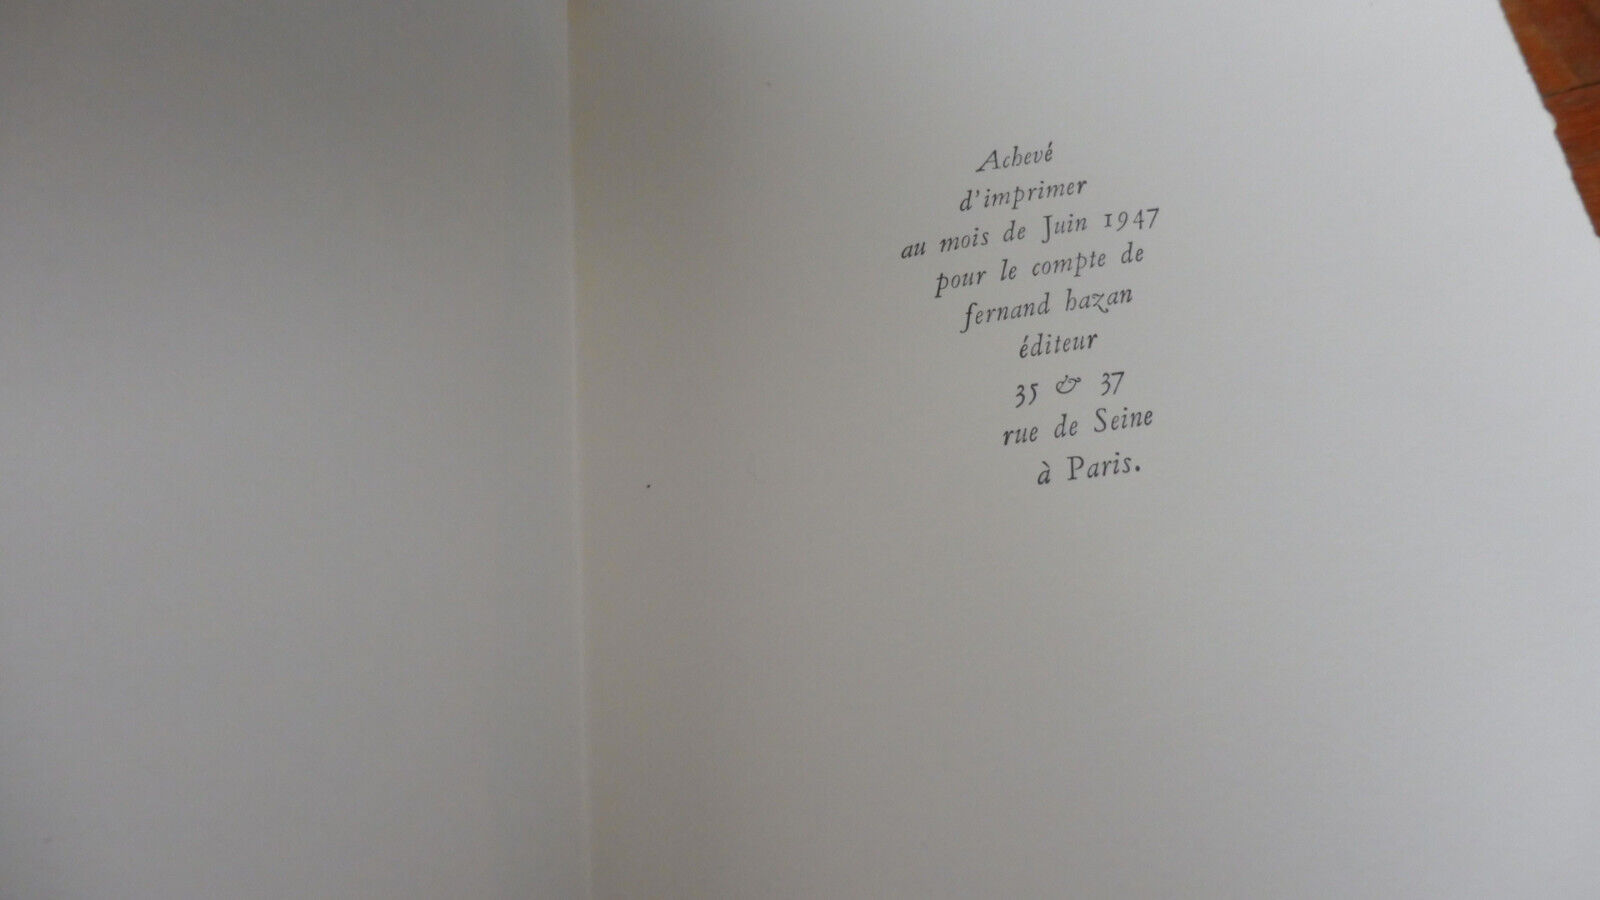 Achevé
d'imprimer
au mois de Juin 1947
pour le compte de
fernand hazan
éditeur
35 & 37
rue de Seine
à Paris.